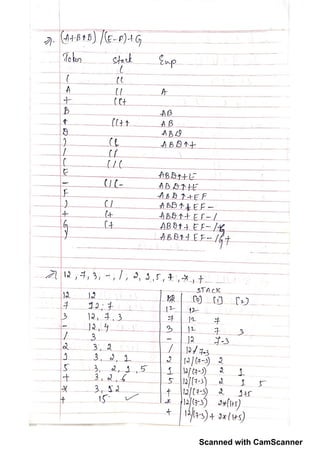 (A+B↑D) / (E-F)+G
Token Stack Exp
(
( ((
A (( A
+ ((+
B AB
↑ ((+↑ AB
D ABD
) (( ABD↑+
/ (/
( (/(
E ABD↑+E
- (/(- ABD↑+E
F ABD↑+EF
) (/ ABD↑+EF-
+ (+ ABD↑+EF-/
G (+ ABD↑+EF-/G
) ABD↑+EF-/G+
12, 7, 3, -, /, 2, 1, 5, +, *, +
STACK
12 12 [0] [1] [2]
7 12, 7 12 12
3 12, 7, 3 7 12 7
- 12, 4 3 12 7 3
/ 3 - 12 7-3
2 3, 2 / 12/7-3
1 3, 2, 1 2 12/(7-3) 2
5 3, 2, 1, 5 1 12/(7-3) 2 1
+ 3, 2, 6 5 12/(7-3) 2 1 5
* 3, 12 + 12/(7-3) 2 1+5
+ 15 * 12/(7-3) 2*(1+5)
+ 12/(7-3) + 2*(1+5)
Scanned with CamScanner